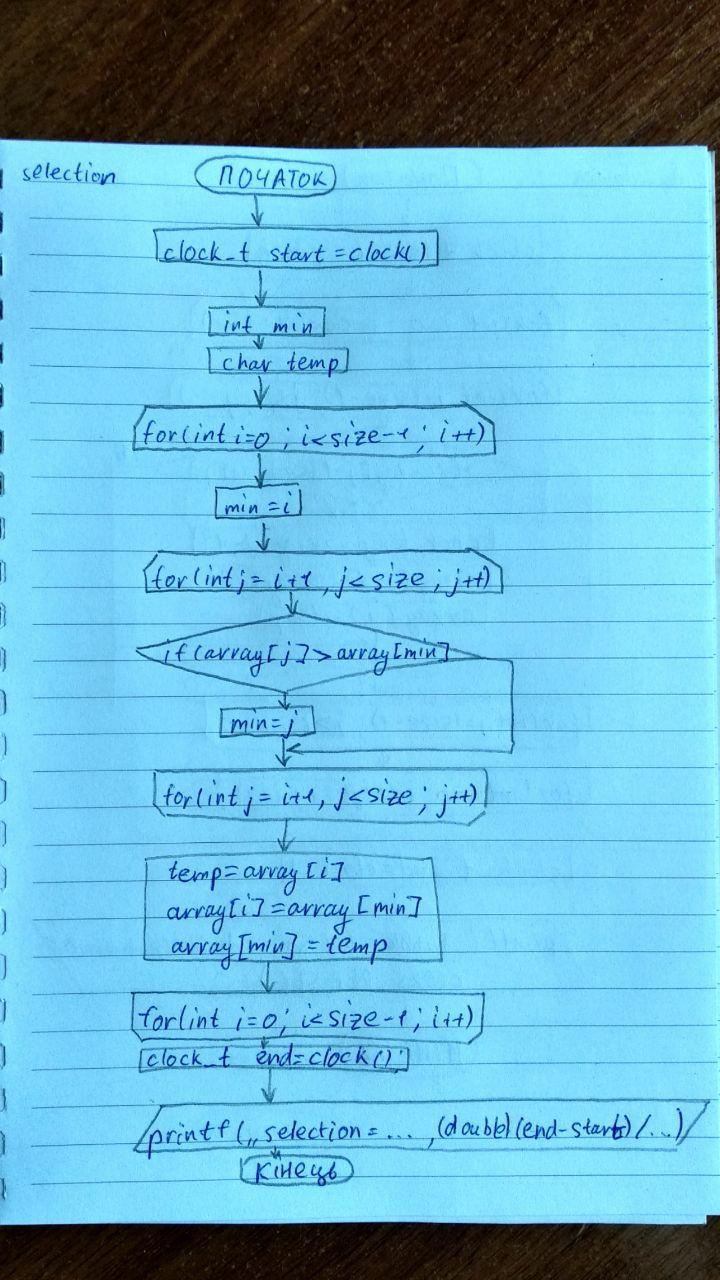 selection
ПОЧАТОК
clock_t start = clock()
int min
char temp
for(int i=0 ; i<size-1 ; i++)
min = i
for(int j= i+1 , j<size ; j++)
if (array[j] > array[min]
min=j
for(int j= i+1, j<size ; j++)
temp=array [i]
array[i]=array [min]
array[min] = temp
for(int i=0; i<size-1 ; i++)
clock_t end=clock();
printf („selection = ... , (double) (end-start) / ...)
Кінець